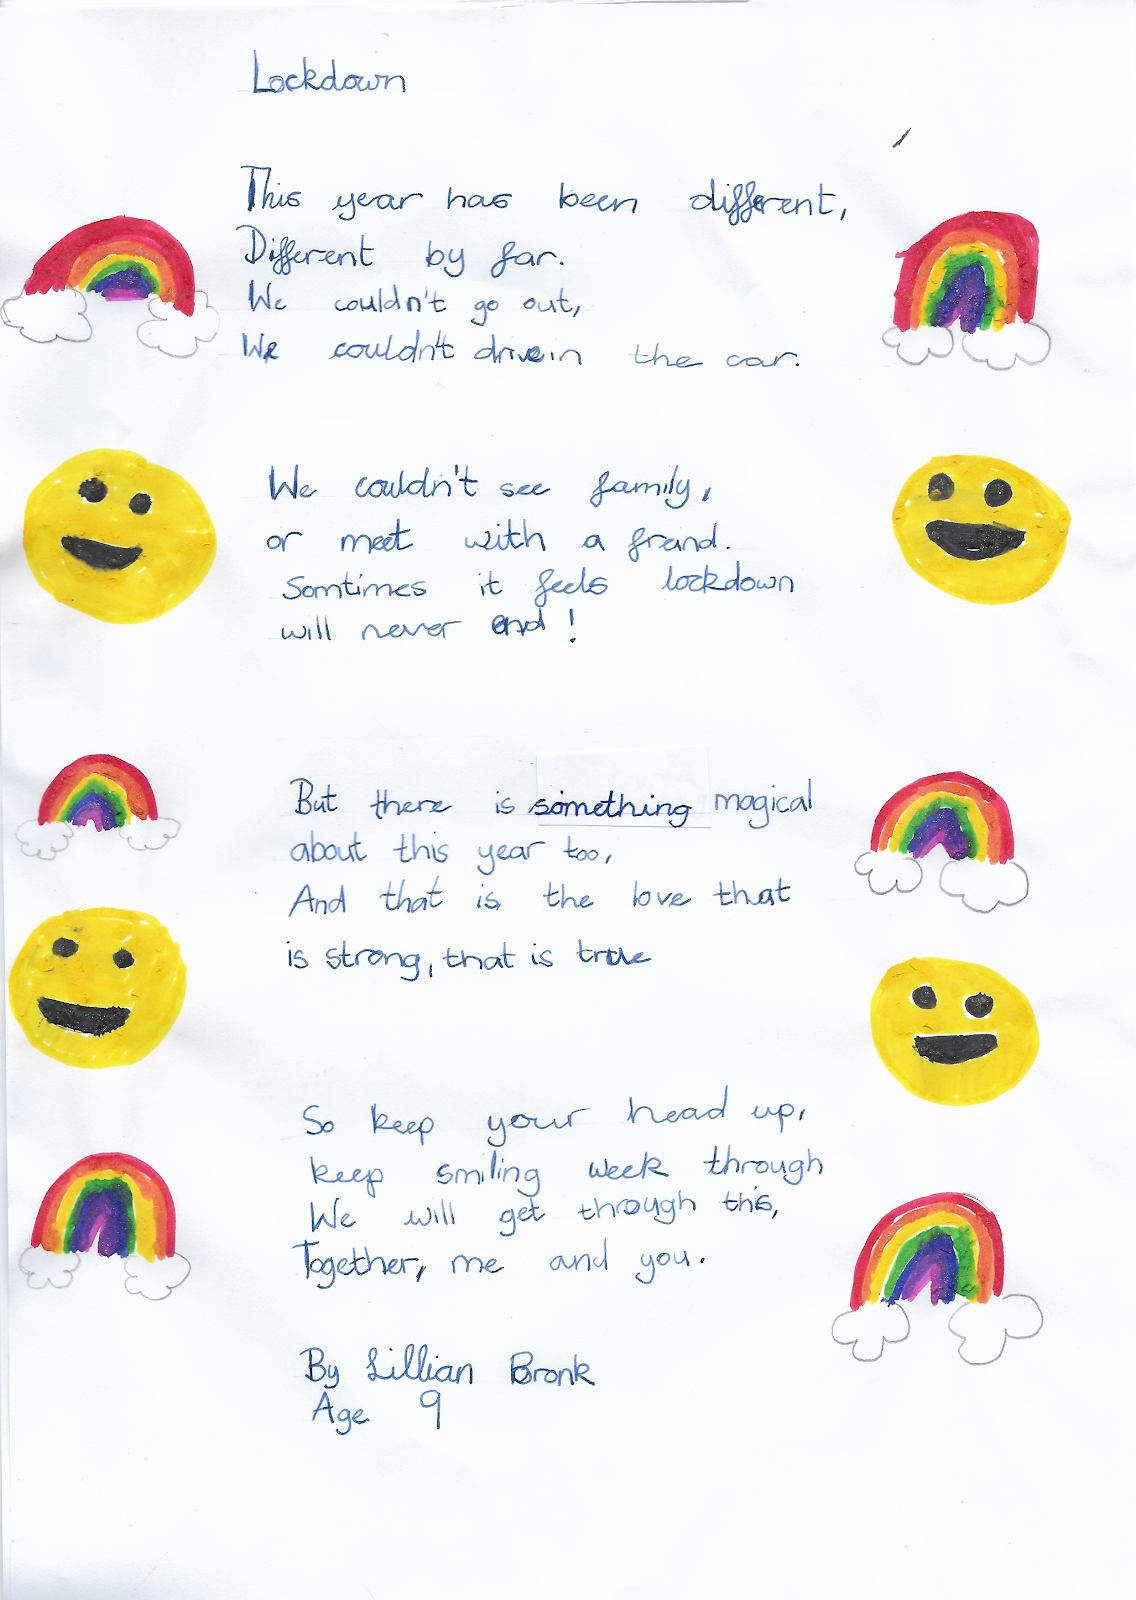 Lockdown
This year has been different,
Different by far.
We couldn't go out,
We couldn't drive in the car.
We couldn't see family,
or meet with a friend.
Somtimes it feels lockdown
will never end!
But there is something magical
about this year too,
And that is the love that
is strong, that is true
So keep your head up,
keep smiling week through
We will get through this,
Together, me and you.
By Lillian Bronk
Age 9